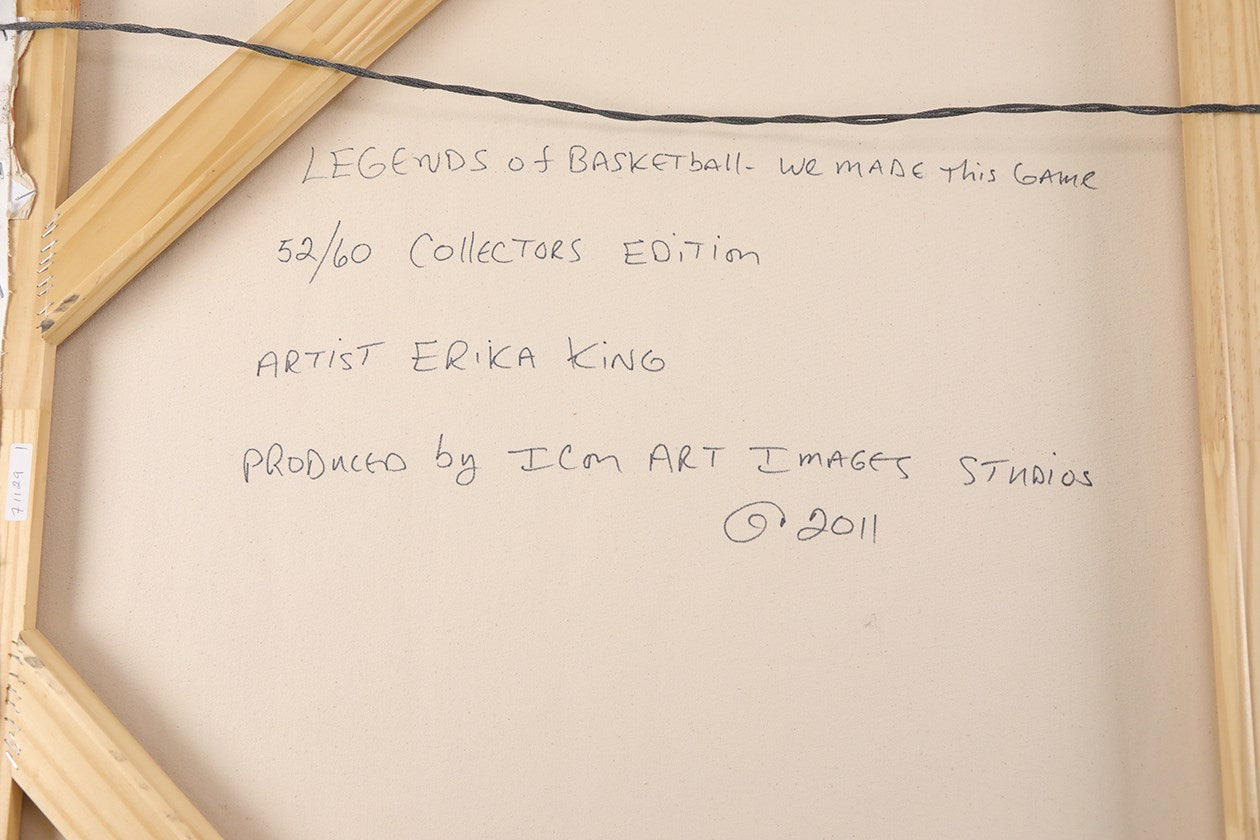 LEGENDS of BASKETball - We MADE This GAME
52/60 COllECTORS EDiTion
ARTIST ERiKA KiNG
PRODUCED by ICon ART IMAGES STUDIOS
© 2011
71129 1